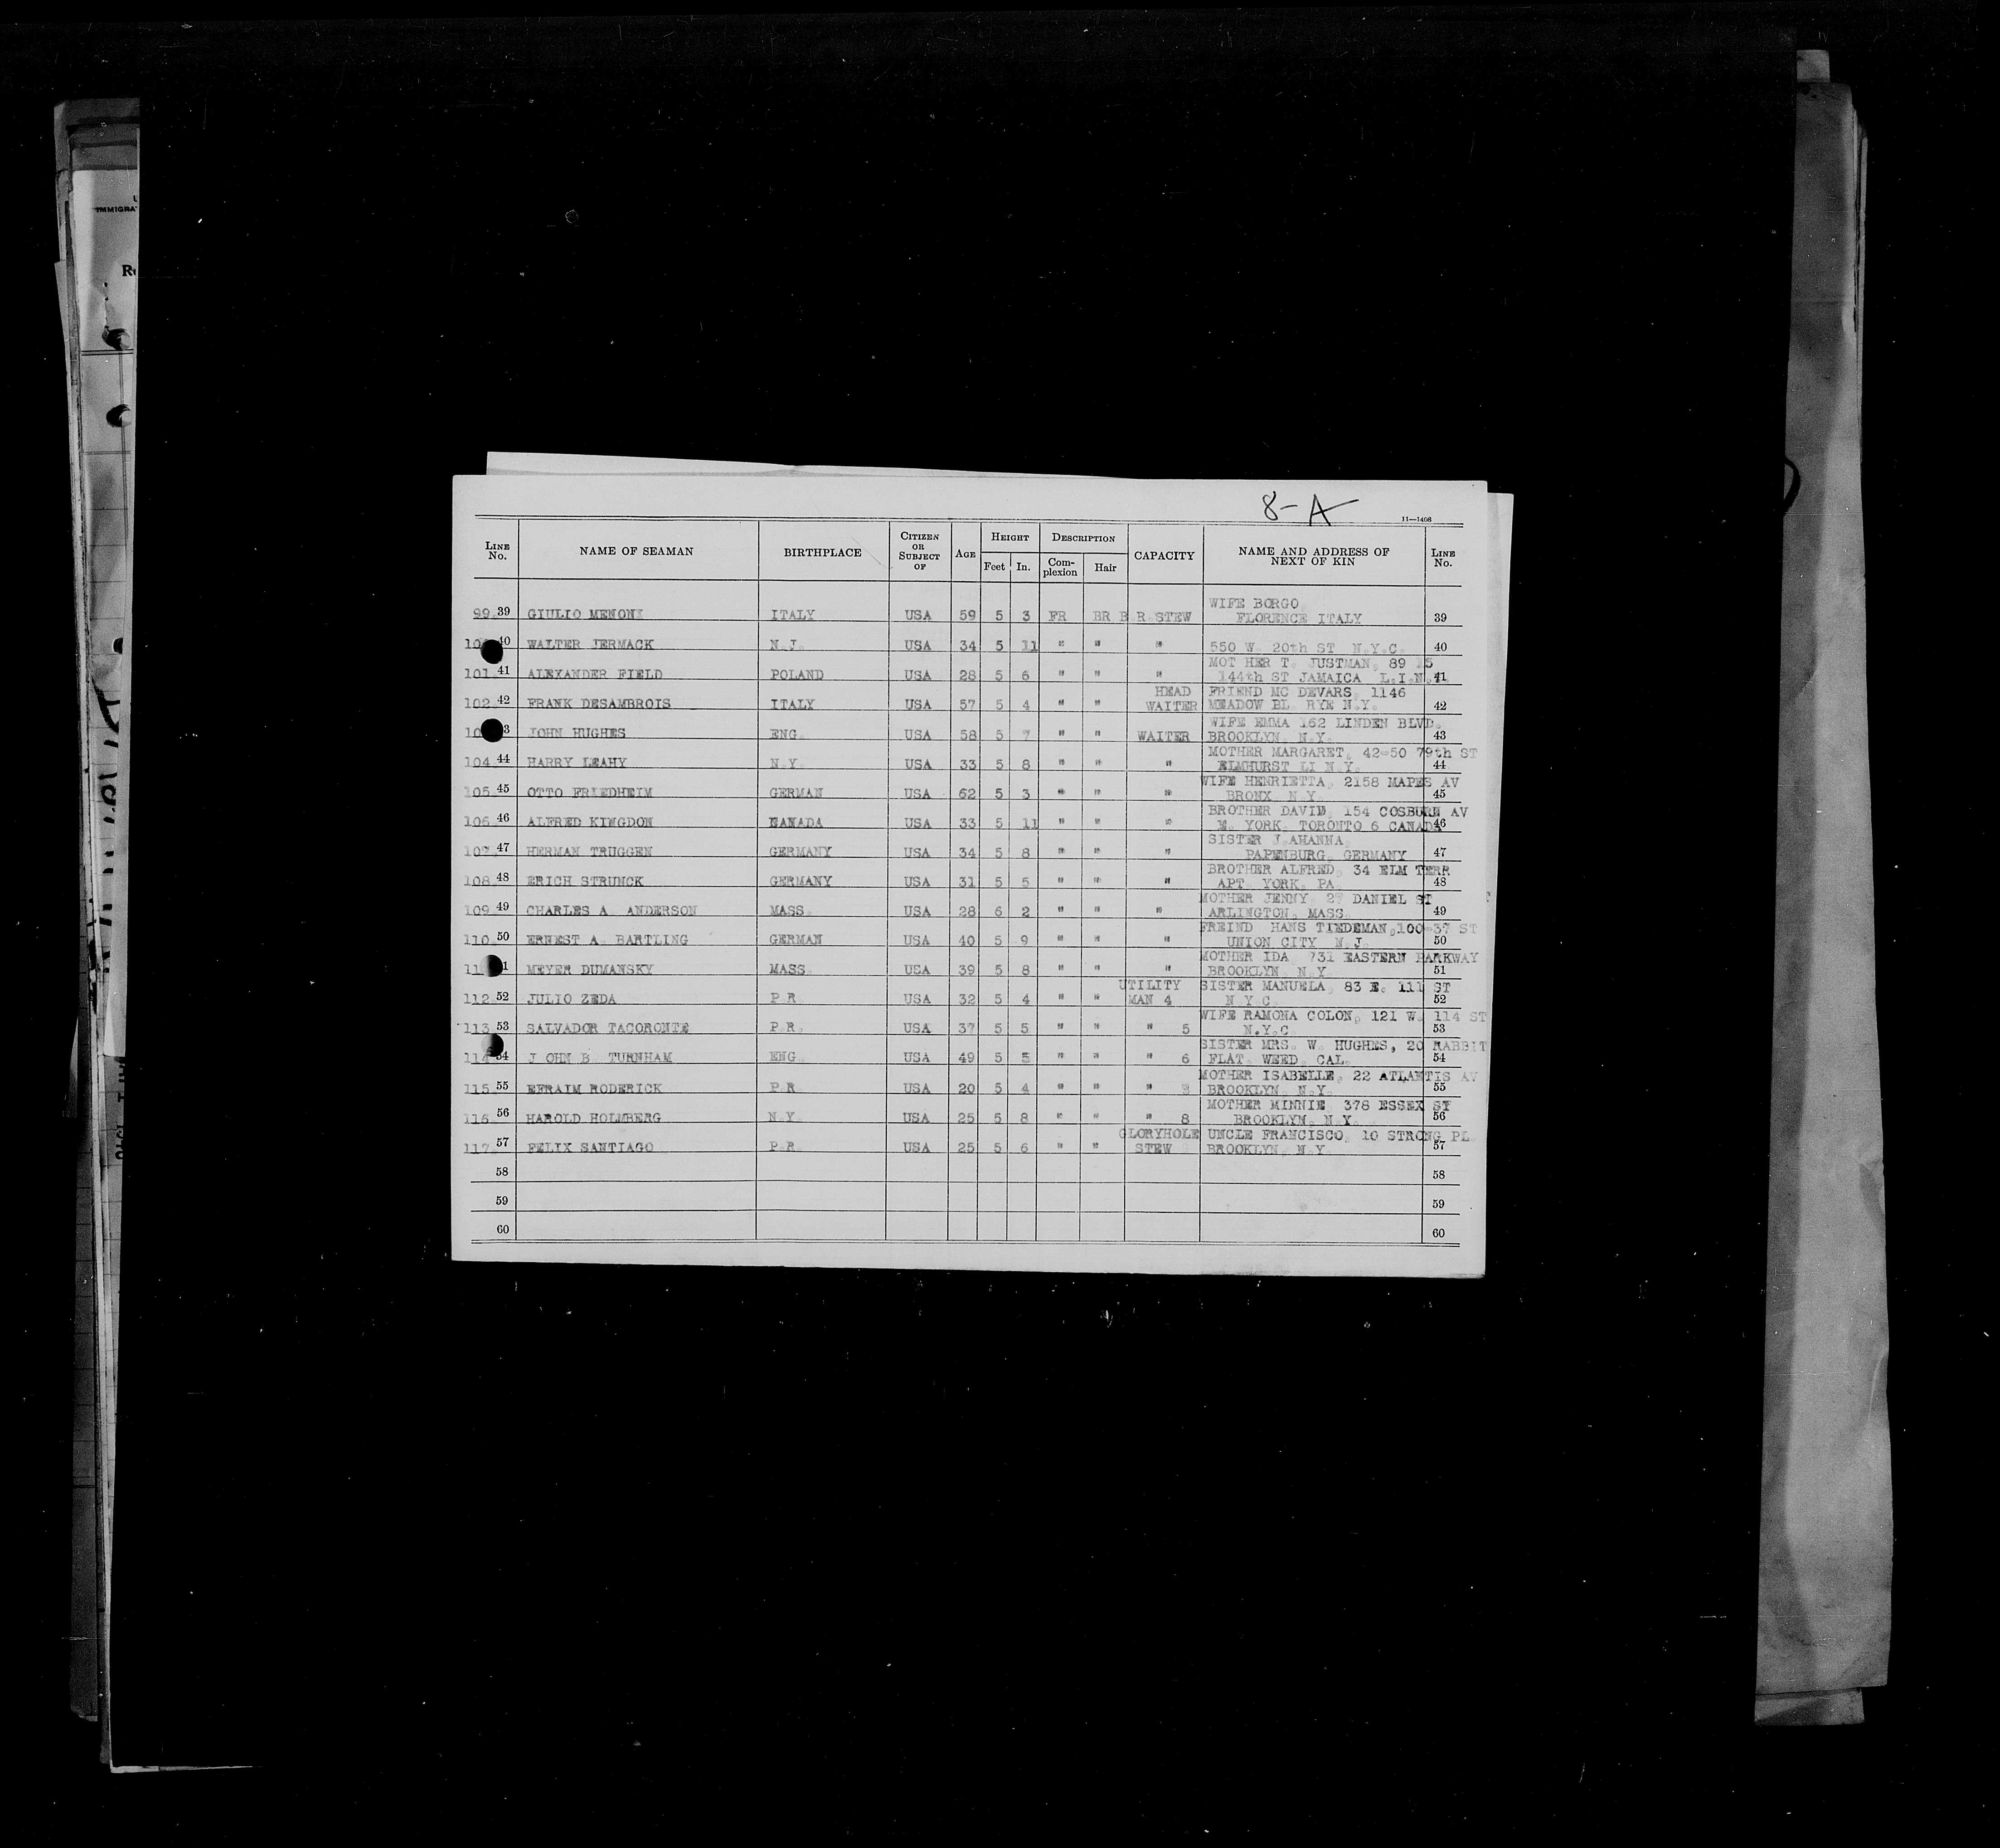 8-A
11—1408
LINE No. NAME OF SEAMAN BIRTHPLACE CITIZEN OR SUBJECT OF AGE HEIGHT Feet In. DESCRIPTION Complexion Hair CAPACITY NAME AND ADDRESS OF NEXT OF KIN LINE No.
WIFE BORGO
99. 39 GIULIO MENONI ITALY USA 59 5 3 FR BR B R STEW FLORENCE ITALY 39
40 WALTER JERMACK N.J. USA 34 5 11 " " " 550 W. 20th ST N.Y.C. 40
MOT HER T. JUSTMAN, 89 15
101. 41 ALEXANDER FIELD POLAND USA 28 5 6 " " " 144th ST JAMAICA L.I.N.Y. 41
HEAD FRIEND MC DEVARS, 1146
102. 42 FRANK DESAMBROIS ITALY USA 57 5 4 " " WAITER MEADOW BL RYE N.Y. 42
WIFE EMMA 162 LINDEN BLVD.
3 JOHN HUGHES ENG. USA 58 5 7 " " WAITER BROOKLYN, N.Y. 43
MOTHER MARGARET, 42-50 79th ST
104. 44 HARRY LEAHY N.Y. USA 33 5 8 " " " ELMHURST LI N.Y. 44
WIFE HENRIETTA, 2158 MAPES AV
105. 45 OTTO FRIEDHEIM GERMAN USA 62 5 3 " " " BRONX N.Y. 45
BROTHER DAVID, 154 COSBURN AV
106. 46 ALFRED KINGDON CANADA USA 33 5 11 " " " E. YORK TORONTO 6 CANADA 46
SISTER J.AHANNA,
107. 47 HERMAN TRUGGEN GERMANY USA 34 5 8 " " " PAPENBURG, GERMANY 47
BROTHER ALFRED, 34 ELM TERR
108. 48 ERICH STRUNCK GERMANY USA 31 5 5 " " " APT. YORK, PA. 48
MOTHER JENNY 27 DANIEL ST
109. 49 CHARLES A. ANDERSON MASS. USA 28 6 2 " " " ARLINGTON, MASS. 49
FREIND HANS TIEDEMAN,100-37 ST
110. 50 ERNEST A. BARTLING GERMAN USA 40 5 9 " " " UNION CITY N.J. 50
MOTHER IDA 731 EASTERN PARKWAY
MEYER DUMANSKY MASS. USA 39 5 8 " " " BROOKLYN, N.Y. 51
UTILITY SISTER MANUELA, 83 E. 111 ST
112. 52 JULIO ZEDA P.R. USA 32 5 4 " " MAN 4 N.Y.C. 52
WIFE RAMONA COLON, 121 W. 114 ST
113. 53 SALVADOR TACORONTE P.R. USA 37 5 5 " " " 5 N.Y.C. 53
SISTER MRS. W. HUGHES, 20 RABBIT
114. 54 J OHN B. TURNHAM ENG. USA 49 5 5 " " " 6 FLAT. WEED, CAL. 54
MOTHER ISABELLE, 22 ATLANTIS AV
115. 55 EFRAIM RODERICK P.R. USA 20 5 4 " " " BROOKLYN, N.Y. 55
MOTHER MINNIE, 378 ESSEX ST
116. 56 HAROLD HOLMBERG N.Y. USA 25 5 8 " " " 8 BROOKLYN, N.Y. 56
GLORYHOLE UNCLE FRANCISCO, 10 STRONG PL.
117. 57 FELIX SANTIAGO P.R. USA 25 5 6 " " STEW BROOKLYN, N.Y. 57
58 58
59 59
60 60